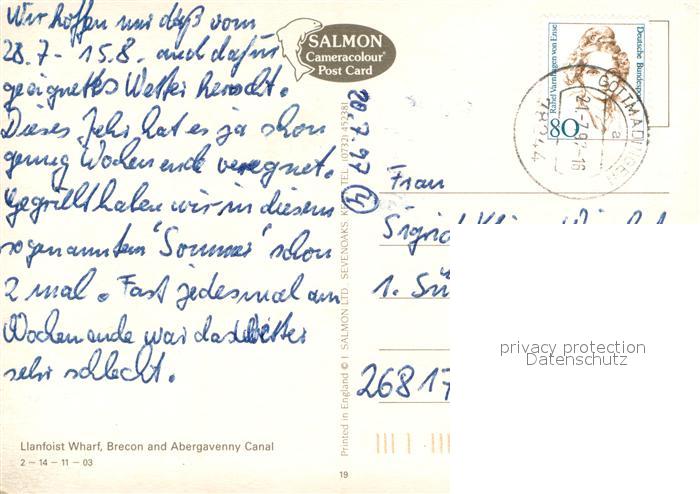 Wir hoffen nur daß vom
28.7 - 15.8. auch dafür
geeignetes Wetter herrscht.
Dieses Jahr hat es ja schon
genug Wochenende verregnet.
Gegrillt haben wir in diesem
sogenannten "Sommer" schon
2 mal. Fast jedesmal am
Wochenende war das Wetter
sehr schlecht.
Llanfoist Wharf, Brecon and Abergavenny Canal
2 – 14 – 11 – 03
SALMON
Cameracolour
Post Card
Printed in England © J. SALMON LTD. SEVENOAKS, TEL. (0732) 452381
19
20.7.97 (4)
Rahel Varnhagen von Ense
Deutsche Bundespost
80
GOTTMADINGEN
a
21.-7.97-16
78244
Frau
Sigrid
1. Sü
26817
privacy protection
Datenschutz